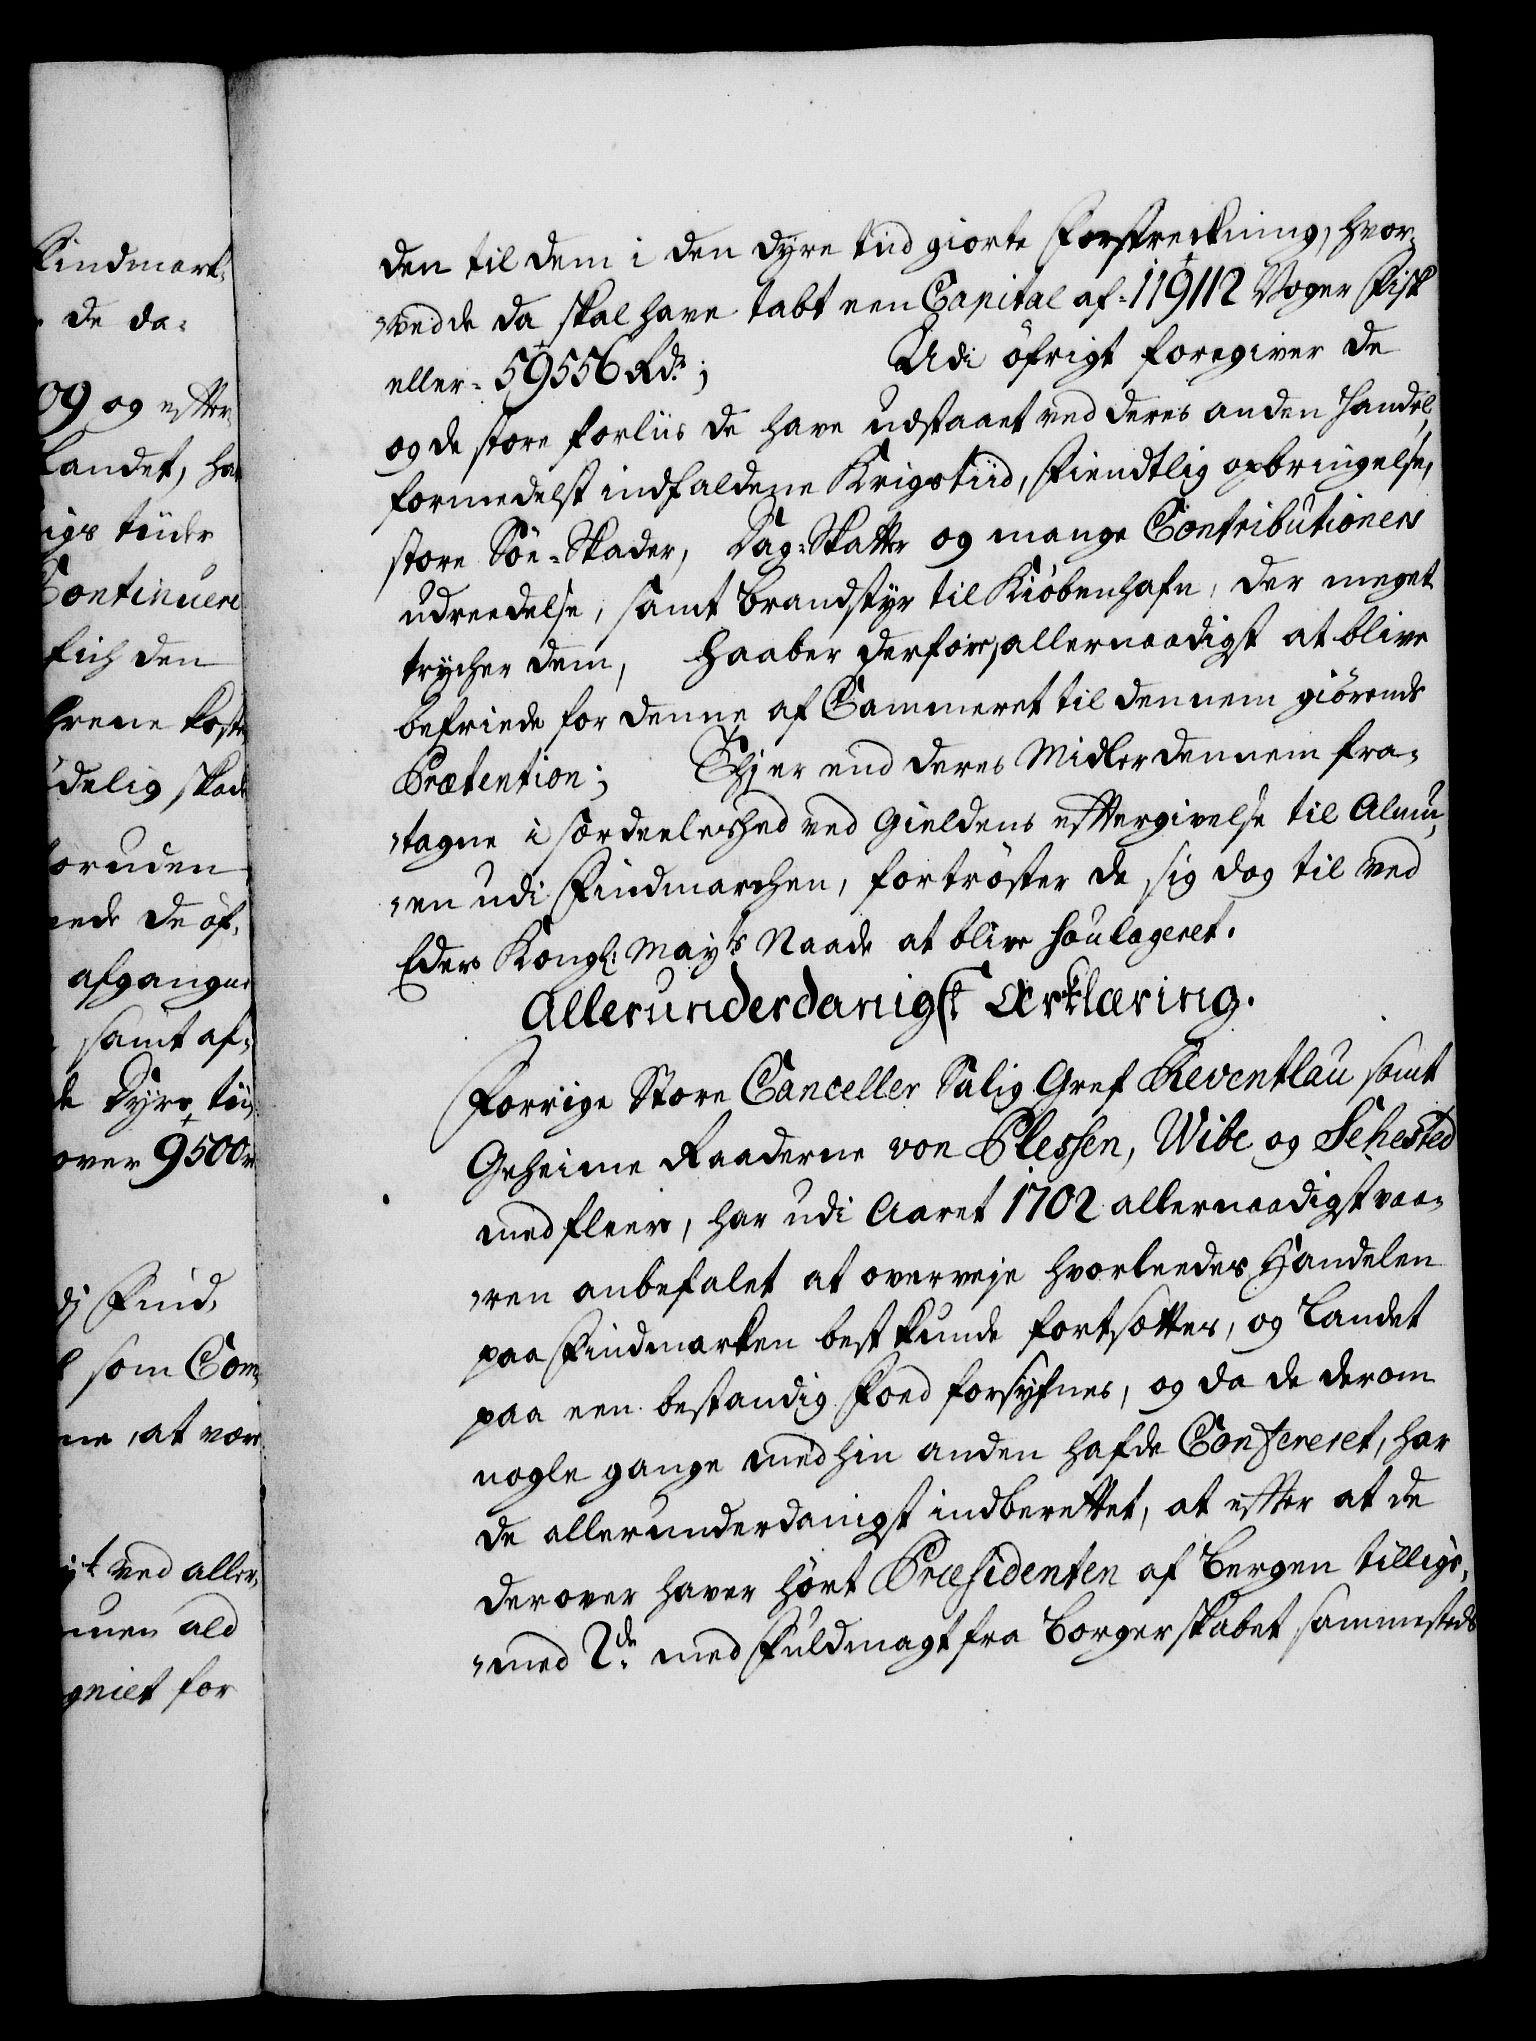 Findmark-
de da-
09 og efter
Landet, ha
igs tiider
Continuere
fich den
drene kost
delig skad
foruden
ede de öf-
afgangne
samt af-
de Dyre tii
over 9500
dj Find-
som Com-
ne, at være
ved aller-
men ald
gniet for
den til dem i den dyre tiid giorte Forstreckning, hvor-
ved de da skal have tabt een Capital af 119112 Voger Fisk
eller 59556 Rdr; Udi öfrigt foregiver de
og de store forliis de have udstaaet ved deres anden Handel,
formedelst indfaldene Krigstiid, Fiendtlig opbringelse,
store Söe-Skader, Dag-Skatter og mange Contributioners
udreedelse, samt brandstyr til Kiöbenhafn, der meget
trycher dem, Haaber derfore allernaadigst at blive
befriede for denne af Cammeret til dennem giörende
Prætention; Thj er end deres Midler dennem fra-
tagne i særdeeleshed ved Gieldens eftergivelse til Almu-
en udi Findmarchen, fortröster de sig dog til ved
Eders Kongl: Mayts Naade at blive soulageret.
Allerunderdanigst Erklæring.
Forrige Store Canceller Salig Gref Reventlau samt
Geheime Raaderne von Plessen, Wibe og Sehested
med fleere, har udi Aaret 1702 allernaadigst vaa-
ren anbefalet at overveje hvorleedes Handelen
paa Findmarken best kunde fortsættes, og Landet
paa een bestandig Foed forsyfnes, og da de derom
nogle gange med hin anden hafde Confereret, har
de allerunderdanigst indberettet, at efter at de
derover haver hört Præsidenten af Bergen tillige-
med 2de med Fuldmagt fra Borgerskabet sammesteds